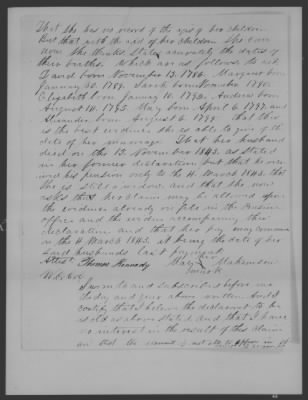 That she has no record of the ages of her children
But that with the aid of her children she can
now she thinks state accurately the dates of
their births which are as follows to wit
David born November 13. 1786. Margaret born
January 30. 1789. Sarah born November 1790.
Elizabeth born January 18. 1793. Andrew born
August 14. 1795 Mary born April 6. 1797 and
Alexander born August 6. 1799 that this
is the best evidence she is able to give of the
date of her marriage That her husband
died on the 13 November 1843. as stated
in her former declaration but that he rec-
ived his pension only to the 4 March 1843. that
she is still a widow and that she now
asks that her claim may be allowed upon
the evidence already on file in the Pension
office and the evidence accompanying this
declaration and that her pay may commence
on the 4 March 1843. it being the date of her
said husbands last payment
Attest Thomas Kennedy Mary her
mark
Sworn to and subscribed before me
the day and year above written and I
certify that I believe the declarant to be
as old as above stated and that I have
no interest in the result of this claim